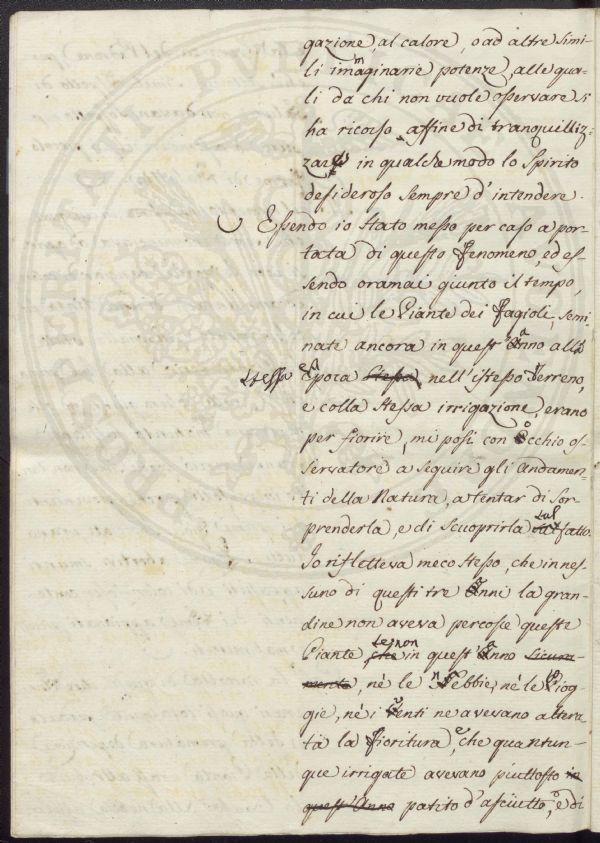 gazione, al calore, o ad altre simi-
li immaginarie potenze, alle qua-
li da chi non vuole osservare si
ha ricorso affine di tranquilliz-
zare in qualche modo lo Spirito
desideroso sempre d'intendere.
Essendo io stato messo per caso a por-
tata di questo fenomeno, ed es-
sendo oramai giunto il tempo,
in cui le Piante dei fagioli, semi-
nate ancora in quest'anno alla
stessa epoca Stessa nell'istesso Terreno,
e colla stessa irrigazione, erano
per fiorire, mi posi con occhio os-
servatore a seguire gli andamen-
ti della Natura, a tentar di sor-
prenderla, e di scuoprirla sul fatto.
Io rifletteva meco stesso, che in nes-
suno di questi tre anni la gran-
dine non aveva percosse queste
Piante che se non in quest'anno sicura-
mente, nè le nebbie, nè le piog-
gie, nè i venti ne avevano altera-
ta la fioritura, e che quantun-
que irrigate avevano piuttosto in
quest'Anno patito d'asciutto, o di